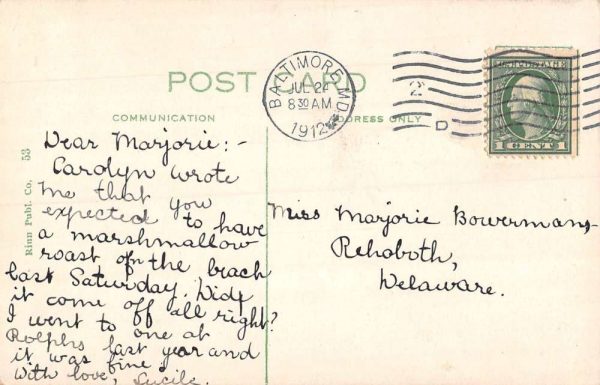 POST CARD
BALTIMORE, MD.
JUL 24
8 30 AM
1912
2
D
1 CENT 1
COMMUNICATION
ADDRESS ONLY
Rinn Publ. Co. 53
Dear Marjorie:-
Carolyn wrote
me that you
expected to have
a marshmallow
roast on the beach
last Saturday. Did
it come off all right?
I went to one at
Rolphs last year and
it was fine.
With love, Lucile.
Miss Marjorie Bowerman,
Rehoboth,
Delaware.